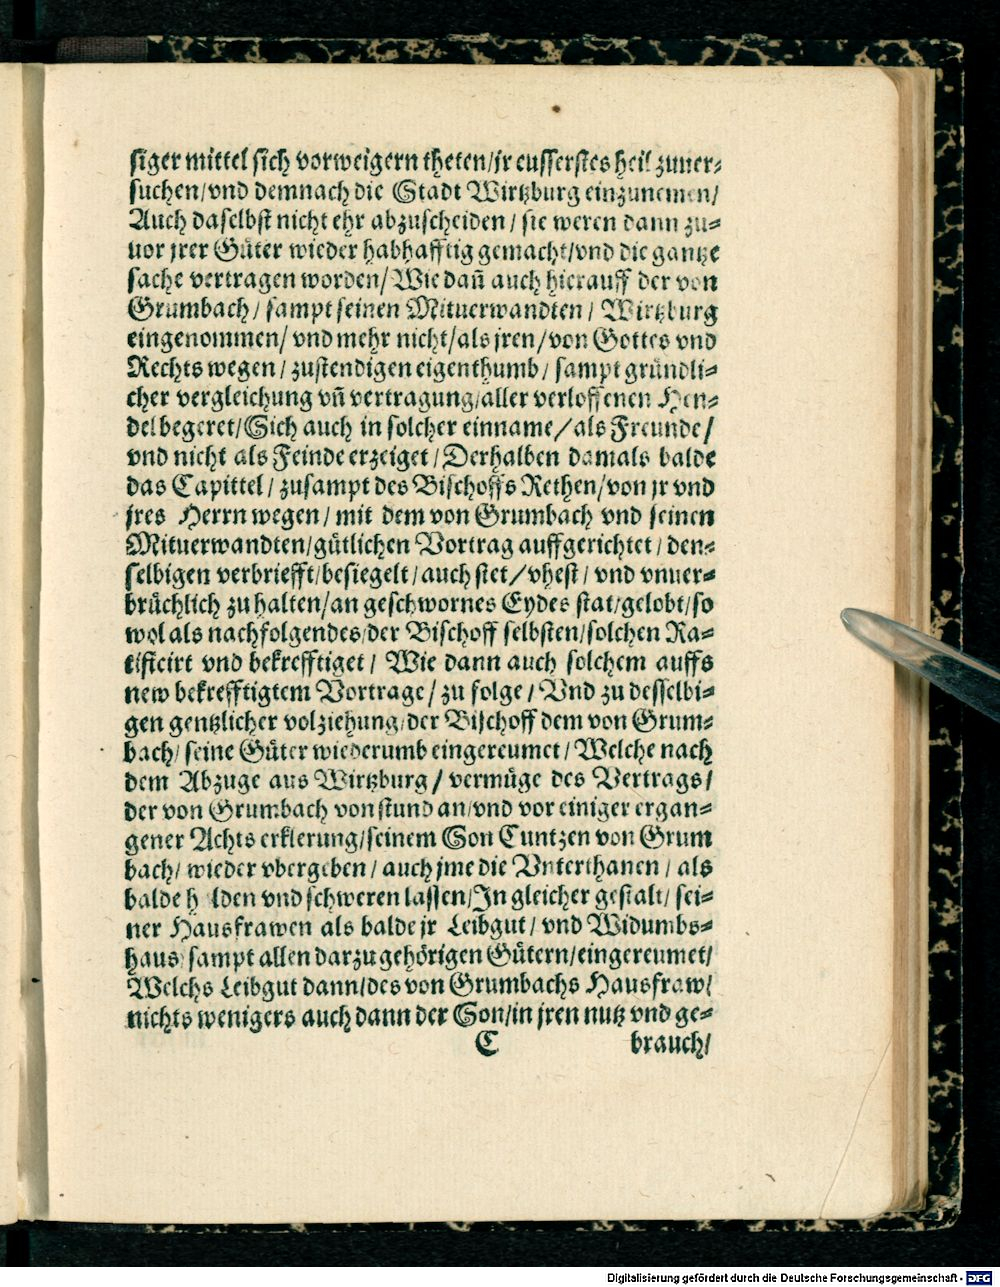 siger mittel sich vorweigern theten/jr eusserstes heil zuuer⸗
suchen/vnd demnach die Stadt Wirtzburg einzunemen/
Auch daselbst nicht ehr abzuscheiden/ sie weren dann zu⸗
uor jrer Güter wieder habhafftig gemacht/vnd die gantze
sache vertragen worden/ Wie dañ auch hierauff der von
Grumbach/ sampt seinen Mituerwandten/ Wirtzburg
eingenommen/ vnd mehr nicht/als jren/von Gottes vnd
Rechts wegen/ zustendigen eigenthumb/ sampt gründli⸗
cher vergleichung vñ vertragung/aller verloffenen Hen⸗
del begeret/Sich auch in solcher einname/als Freunde/
vnd nicht als Feinde erzeiget/Derhalben damals balde
das Capittel/ zusampt des Bischoffs Rethen/von jr vnd
jres Herrn wegen/ mit dem von Grumbach vnd seinen
Mituerwandten/gütlichen Vortrag auffgerichtet/ den⸗
selbigen verbriefft/besiegelt/auch stet/vhest/ vnd vnuer⸗
brüchlich zu halten/an geschwornes Eydes stat/gelobt/so
wol als nachfolgendes/der Bischoff selbsten/solchen Ra⸗
tificirt vnd bekrefftiget/ Wie dann auch solchem auffs
new bekrefftigtem Vortrage/ zu folge/Vnd zu desselbi⸗
gen gentzlicher volziehung/der Bischoff dem von Grum⸗
bach/ seine Güter wiederumb eingereumet/Welche nach
dem Abzuge aus Wirtzburg/ vermüge des Vertrags/
der von Grumbach von stund an/vnd vor einiger ergan⸗
gener Achts erklerung/seinem Son Cuntzen von Grum
bach/ wieder vbergeben/ auch jme die Vnterthanen/ als
balde h lden vnd schweren lassen/In gleicher gestalt/ sei⸗
ner Hausfrawen als balde jr Leibgut/ vnd Widumbs⸗
haus/ sampt allen darzu gehörigen Gütern/eingereumet/
Welchs Leibgut dann/des von Grumbachs Hausfraw/
nichts wenigers auch dann der Son/in jren nutz vnd ge⸗
C brauch/
Digitalisierung gefördert durch die Deutsche Forschungsgemeinschaft - DFG